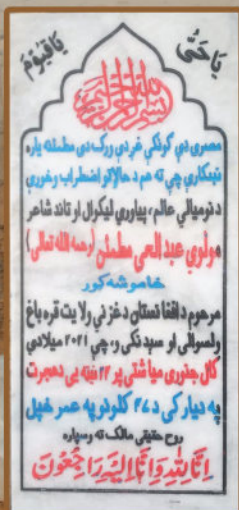 یا حَیُّ یا قَیُّوم
بسم الله الرحمن الرحیم
مصرۍ دې ګونګې غږ دې ورک دی مطمئنه یاره
ښکاري چې ته هم د حالاتو اضطراب وخوړې
د نوميالي عالم، پياوړي ليکوال او تاند شاعر
مولوي عبدالحی مطمئن (رحمه الله تعالی)
خاموشه کور
مرحوم د افغانستان د غزني ولایت قره باغ
ولسوالۍ اوسېدونکی و، چې ۲۰۲۱ ميلادي
کال جنوري مياشتې پر ۲۳ نېټه يې د هجرت
په ديار کې د ۴۷ کلونو په عمر خپل
روح حقيقي مالک ته وسپاره
اِنَّا لِلّٰهِ وَاِنَّا اِلَیْهِ رَاجِعُوْنَ